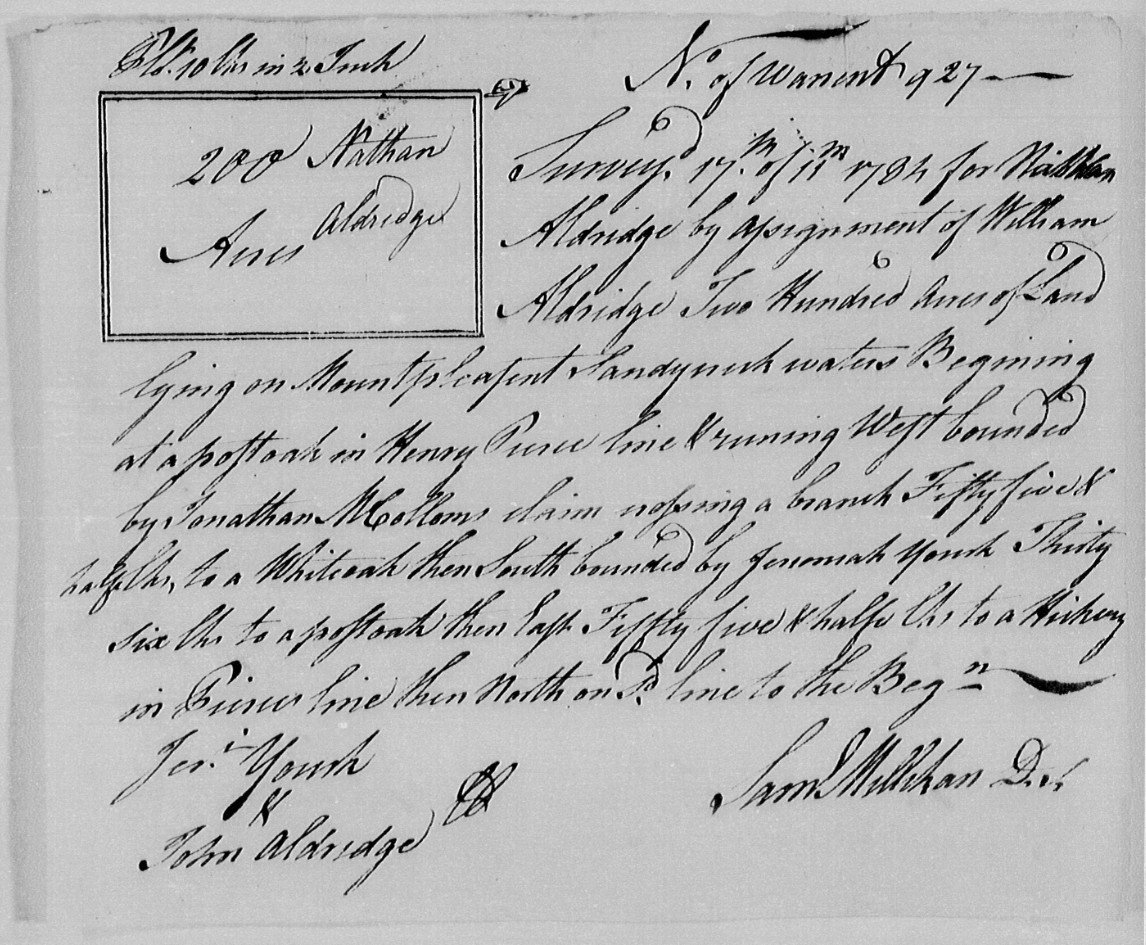 10 Chs in 2 Inch
No. of Warrent 927
200 Nathan
Aldredge
Acres
Survey.d 17.th of 11.m 1784 for Nathan
Aldridge by Assignment of William
Aldridge Two Hundred Acres of Land
lying on Mountpleasent Sandycreek waters Begining
at a postoak in Henry Pierce line & runing West bounded
by Jonathan McColloms claim crossing a branch Fifty five &
half Chs, to a Whiteoak then South bounded by Jeremiah York Thirty
six Chs to a postoak then East Fiffty five & halfe Chs to a Hickery
in Pierces line then North on Sd. line to the Begn
Jer.i York
&
John Aldredge CC
Saml Millikan D.S